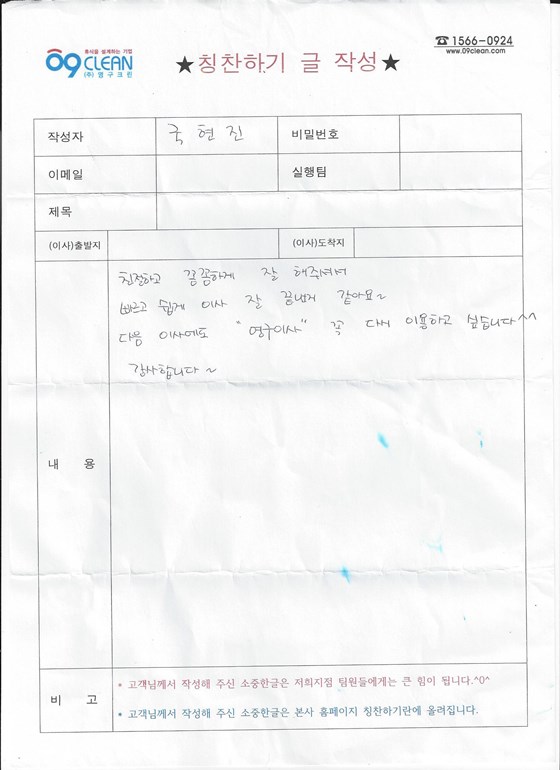 휴식을 설계하는 기업
09 CLEAN
(주)영구크린
★칭찬하기 글 작성★
☎ 1566-0924
www.09clean.com
작성자 국현진 비밀번호
이메일 실행팀
제목
(이사)출발지 (이사)도착지
내 용
친절하고 꼼꼼하게 잘 해주셔서
빠르고 쉽게 이사 잘 끝낸거 같아요~
다음 이사에도 "영구이사" 꼭 다시 이용하고 싶습니다^^
감사합니다~
비 고
• 고객님께서 작성해 주신 소중한글은 저희지점 팀원들에게는 큰 힘이 됩니다.^0^
• 고객님께서 작성해 주신 소중한글은 본사 홈페이지 칭찬하기란에 올려집니다.